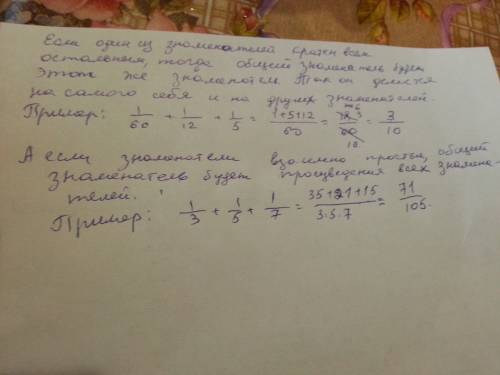 Если один из знаменателей кратен всем
остальным, тогда общий знаменатель будет
этот же знаменатель. Так он делится
на самого себя и на других знаменателей.
Пример: 1/60 + 1/12 + 1/5 = 1+5+12/60 = 18/60 = 3/10
А если знаменатели взаимно простые, общий
знаменатель будет произведения всех знамена-
телей.
Пример: 1/3 + 1/5 + 1/7 = 35+21+15/3·5·7 = 71/105.